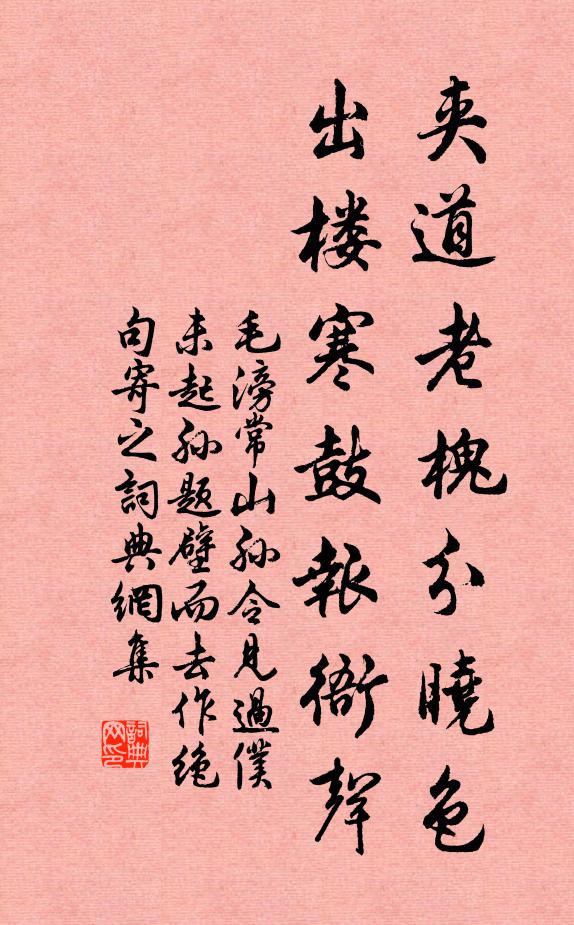 夹道老槐分曉色
出楼寒鼓報衙聲
毛滂常山孙令見過僕
未起孙題壁而去作绝
句寄之詞典網集
詞典网印